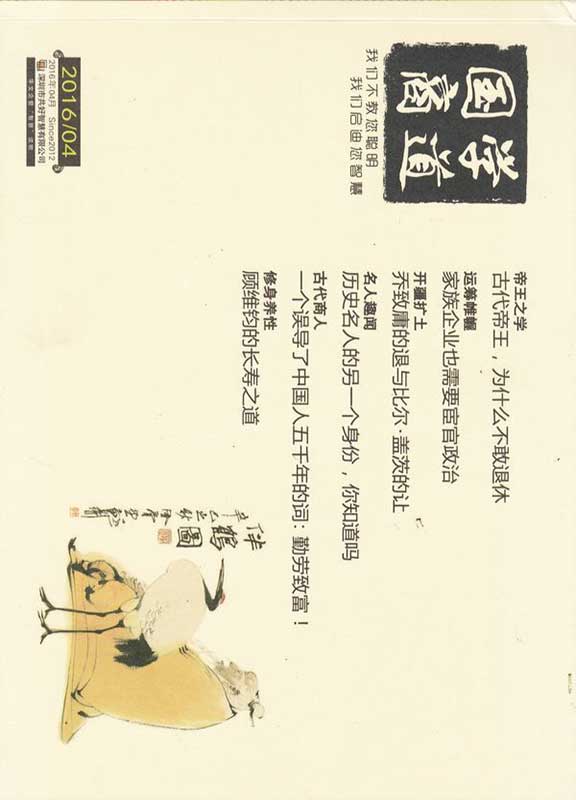 国学
商道
我们不教您聪明
我们启迪您智慧
帝王之学
古代帝王，为什么不敢退休
运筹帷幄
家族企业也需要宦官政治
开疆扩土
乔致庸的退与比尔·盖茨的让
名人趣闻
历史名人的另一个身份，你知道吗
古代商人
一个误导了中国人五千年的词：勤劳致富！
修身养性
顾维钧的长寿之道
2016/04
2016年04月 Since2012
深圳市共好智慧有限公司
伴鶴圖